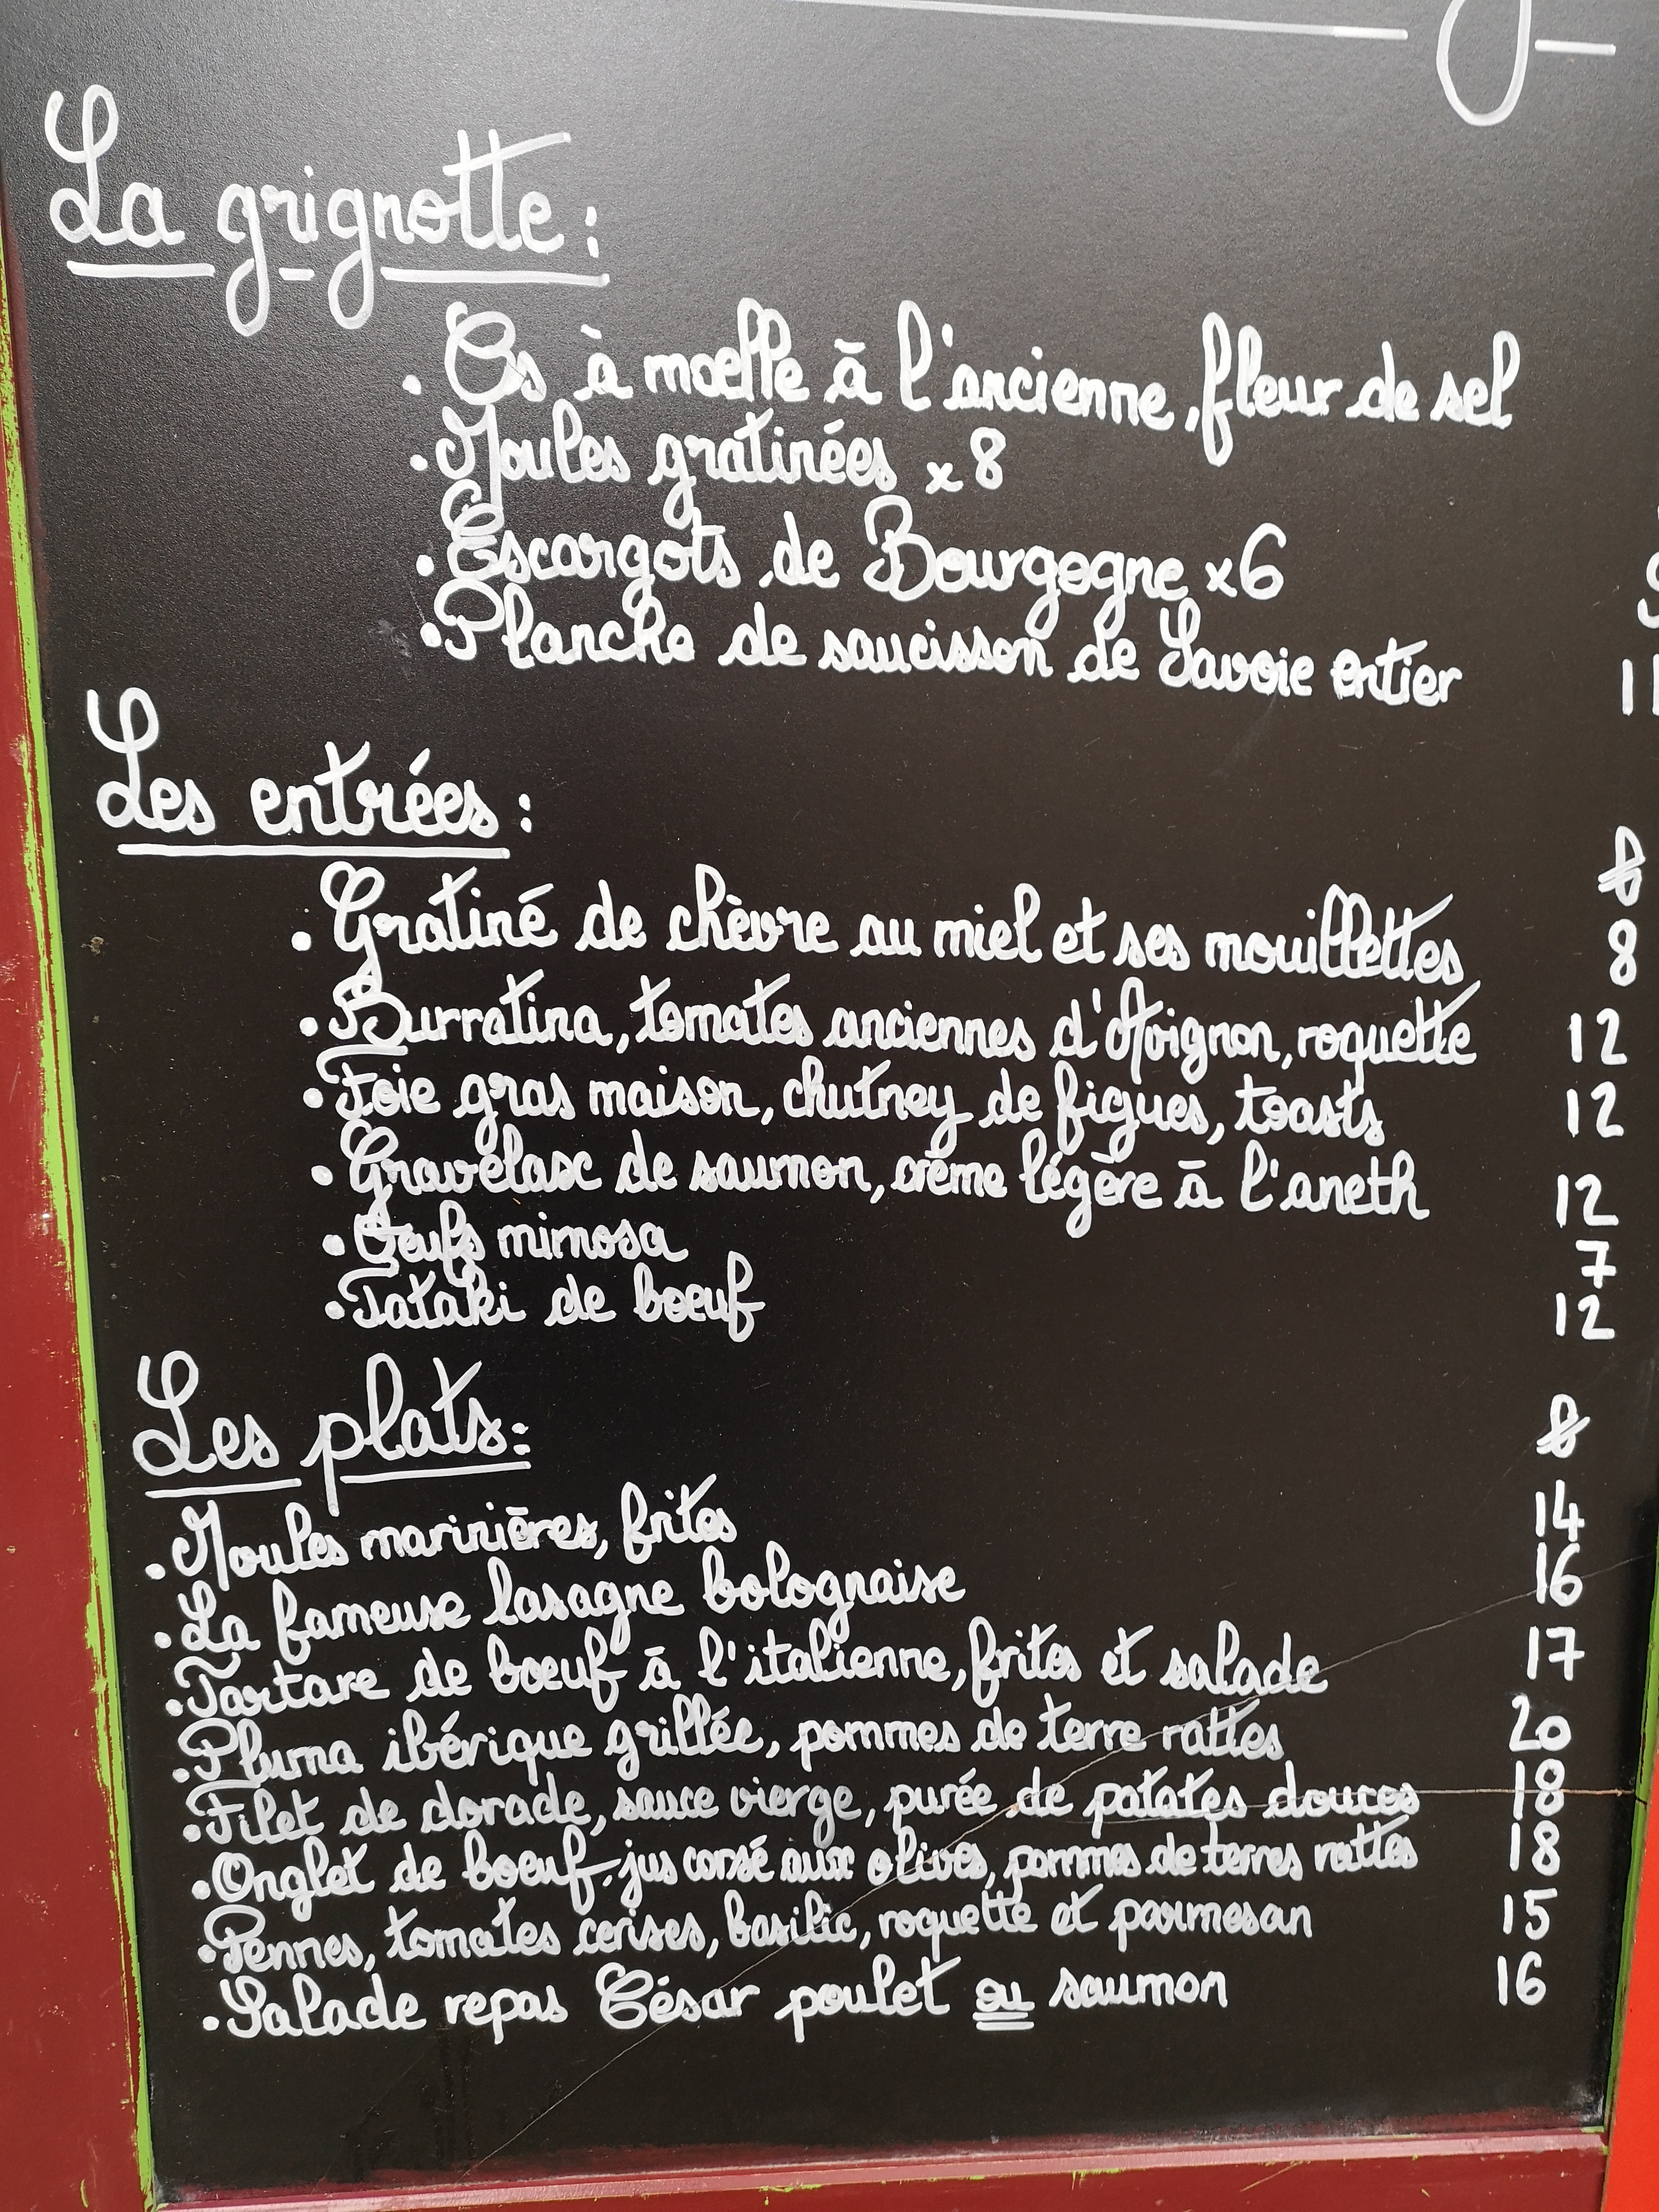 La grignotte :
. Os à moelle à l'ancienne, fleur de sel
. Moules gratinées x8
. Escargots de Bourgogne x6
. Planche de saucisson de Savoie entier
Les entrées :
. Gratiné de chèvre au miel et ses mouillettes 8
. Burratina, tomates anciennes d'Avignon, roquette 12
. Foie gras maison, chutney de figues, toasts 12
. Gravelax de saumon, crème légère à l'aneth 12
. Oeufs mimosa 7
. Tataki de boeuf 12
Les plats :
. Moules marinières, frites 14
. La fameuse lasagne bolognaise 16
. Tartare de boeuf à l'italienne, frites et salade 17
. Pluma ibérique grillée, pommes de terre rattes 20
. Filet de dorade, sauce vierge, purée de patates douces 18
. Onglet de boeuf, jus corsé aux olives, pommes de terres rattes 18
. Pennes, tomates cerises, basilic, roquette et parmesan 15
. Salade repas César poulet ou saumon 16